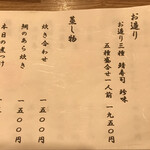 お造り
お造り三種 鯖寿司 珍味
五種盛合せ一人前 一九五〇円
蒸し物
炊き合わせ 一五〇〇円
鯛のあら炊き 一五〇〇円
本日の煮つけ